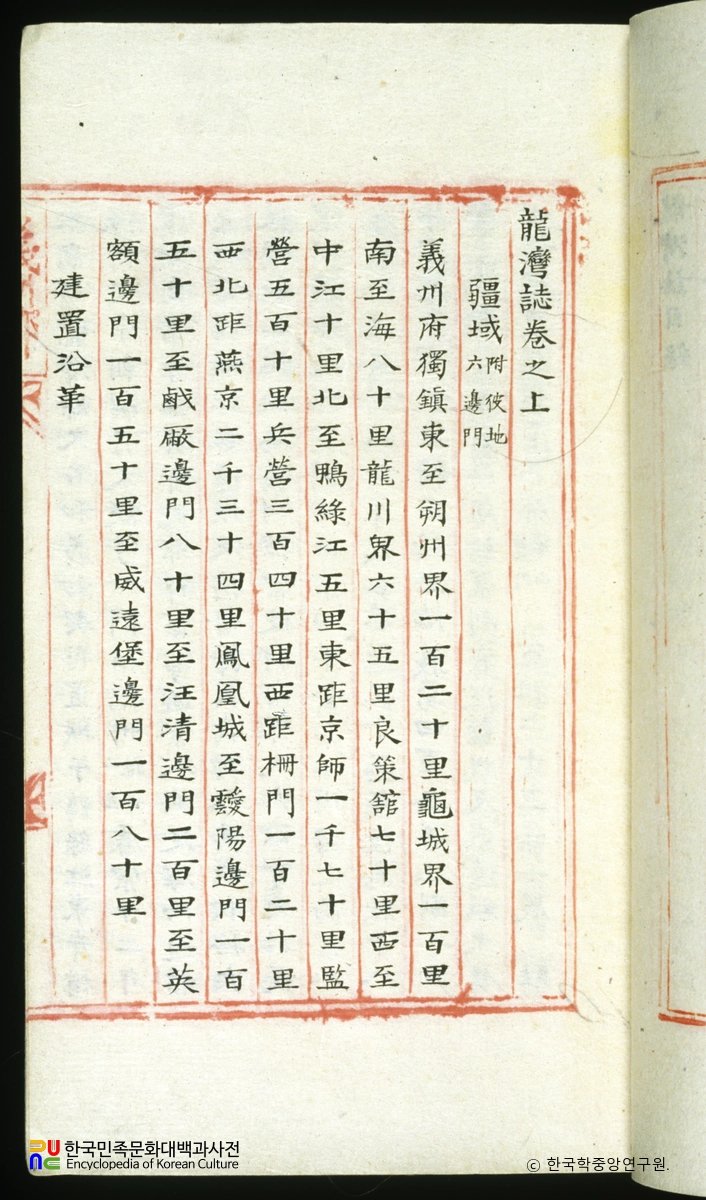 龍灣誌卷之上
疆域 附彼地六邊門
義州府獨鎮東至朔州界一百二十里龜城界一百里
南至海八十里龍川界六十五里良策舘七十里西至
中江十里北至鴨綠江五里東距京師一千七十里監
營五百十里兵營三百四十里西距柵門一百二十里
西北距燕京二千三十四里鳳凰城至靉陽邊門一百
五十里至鹹廠邊門八十里至汪清邊門二百里至英
額邊門一百五十里至威遠堡邊門一百八十里
建置沿革
한국민족문화대백과사전
Encyclopedia of Korean Culture
© 한국학중앙연구원.